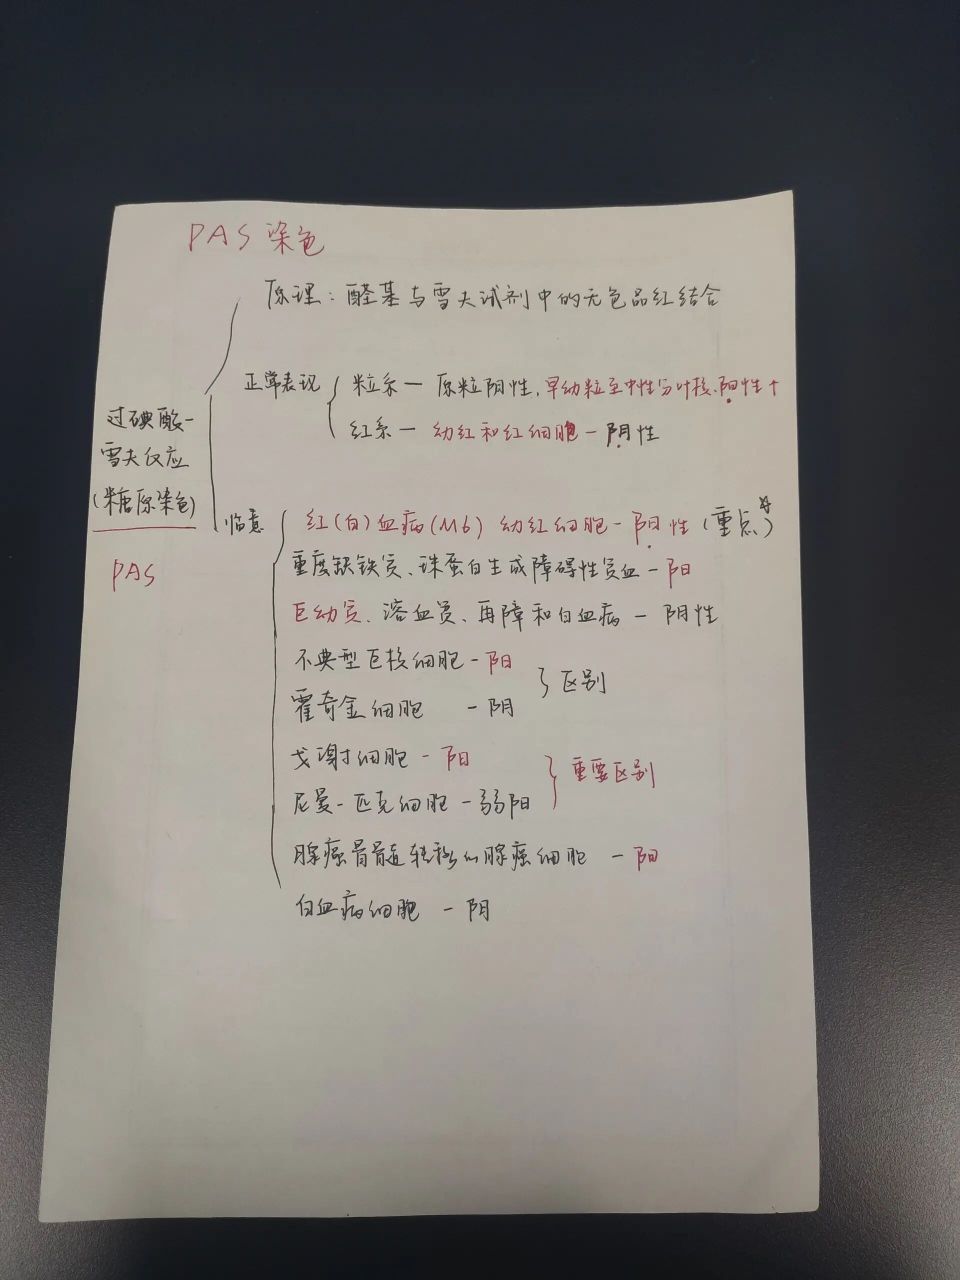 PAS 染色
原理：醛基与雪夫试剂中的无色品红结合
正常表现
粒系 — 原粒阳性，早幼粒至中性分叶核.阳性↑
红系 — 幼红和红细胞 — 阴性
过碘酸-
雪夫反应
(糖原染色)
PAS
临意
红(白)血病(M6) 幼红细胞 - 阳性 (重点☆)
重度缺铁贫、珠蛋白生成障碍性贫血 — 阳
巨幼贫、溶血贫、再障和白血病 — 阴性
不典型巨核细胞 - 阳
霍奇金细胞 - 阴
区别
戈谢细胞 - 阳
尼曼-匹克细胞 - 弱阳
重要区别
腺癌骨髓转移的腺癌细胞 — 阳
白血病细胞 - 阴